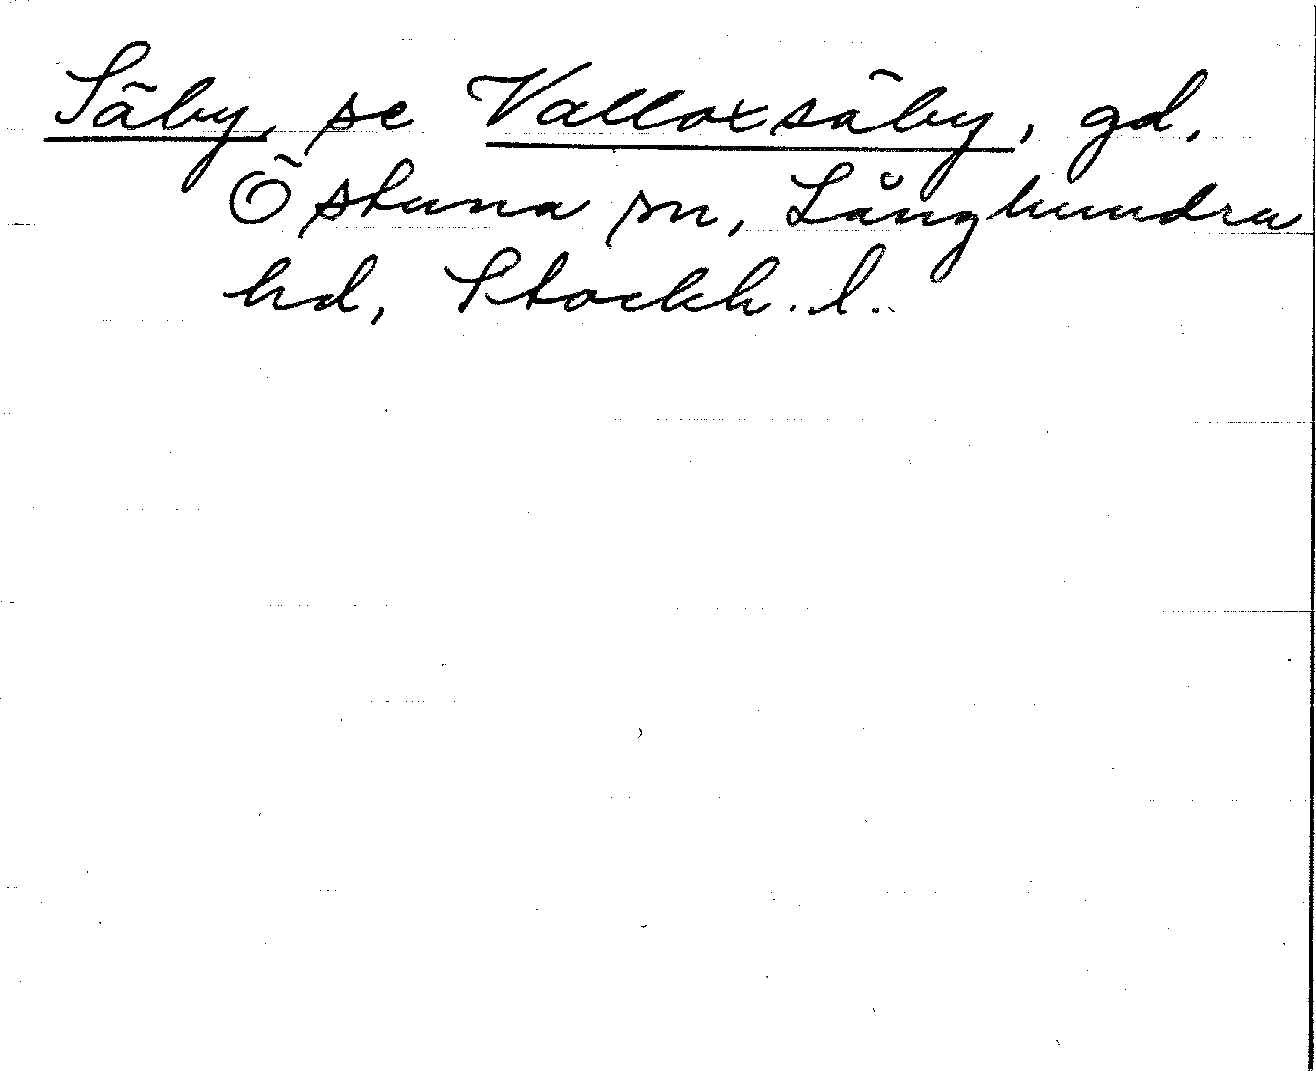 Säby, se Valloxsäby, gd,
Östuna sn, Långhundra
hd, Stockh. l.